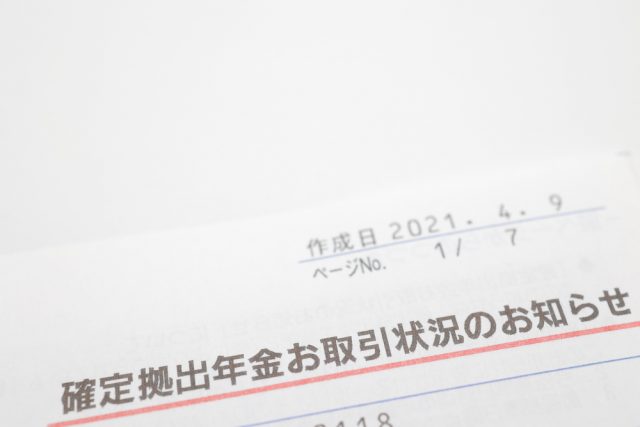 作成日 2021. 4. 9
ページNo. 1/ 7
確定拠出年金お取引状況のお知らせ